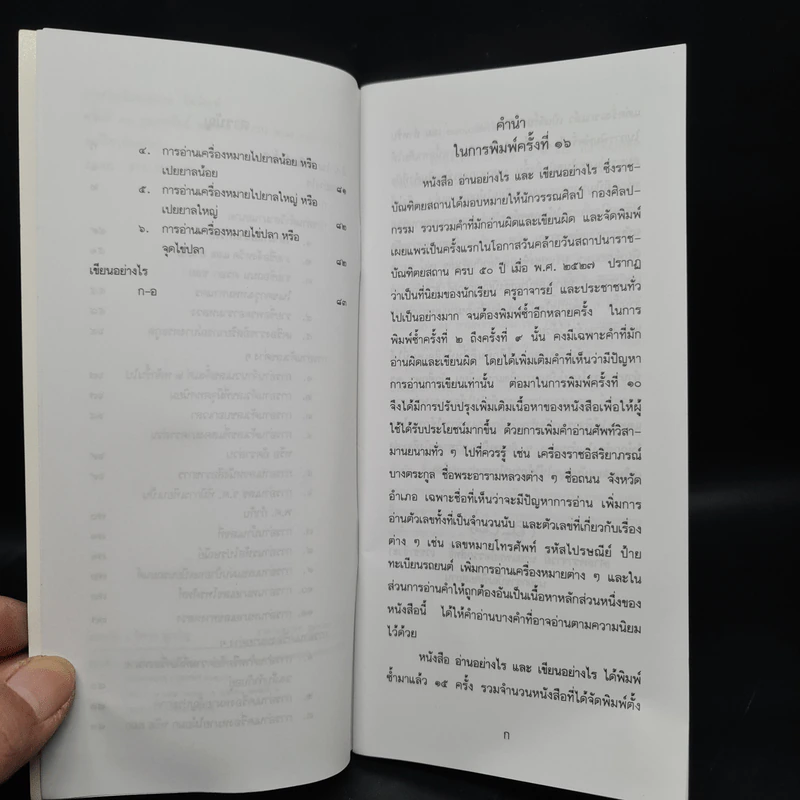 ๔. การอ่านเครื่องหมายไปยาลน้อย หรือ
เปยยาลน้อย ๘๑
๕. การอ่านเครื่องหมายไปยาลใหญ่ หรือ
เปยยาลใหญ่ ๘๒
๖. การอ่านเครื่องหมายไข่ปลา หรือ
จุดไข่ปลา ๘๒
เขียนอย่างไร
ก-ฮ ๘๓
คำนำ
ในการพิมพ์ครั้งที่ ๑๖
หนังสือ อ่านอย่างไร และ เขียนอย่างไร ซึ่งราช-
บัณฑิตยสถานได้มอบหมายให้นักวรรณศิลป์ กองศิลป-
กรรม รวบรวมคำที่มักอ่านผิดและเขียนผิด และจัดพิมพ์
เผยแพร่เป็นครั้งแรกในโอกาสวันคล้ายวันสถาปนาราช-
บัณฑิตยสถาน ครบ ๕๐ ปี เมื่อ พ.ศ. ๒๕๒๗ ปรากฏ
ว่าเป็นที่นิยมของนักเรียน ครูอาจารย์ และประชาชนทั่ว
ไปเป็นอย่างมาก จนต้องพิมพ์ซ้ำอีกหลายครั้ง ในการ
พิมพ์ซ้ำครั้งที่ ๒ ถึงครั้งที่ ๙ นั้น คงมีเฉพาะคำที่มัก
อ่านผิดและเขียนผิด โดยได้เพิ่มเติมคำที่เห็นว่ามีปัญหา
การอ่านการเขียนเท่านั้น ต่อมาในการพิมพ์ครั้งที่ ๑๐
จึงได้มีการปรับปรุงเพิ่มเติมเนื้อหาของหนังสือเพื่อให้ผู้
ใช้ได้รับประโยชน์มากขึ้น ด้วยการเพิ่มคำอ่านศัพท์วิสา-
มานยนามทั่ว ๆ ไปที่ควรรู้ เช่น เครื่องราชอิสริยาภรณ์
บางตระกูล ชื่อพระอารามหลวงต่าง ๆ ชื่อถนน จังหวัด
อำเภอ เฉพาะชื่อที่เห็นว่าจะมีปัญหาการอ่าน เพิ่มการ
อ่านตัวเลขทั้งที่เป็นจำนวนนับ และตัวเลขที่เกี่ยวกับเรื่อง
ต่าง ๆ เช่น เลขหมายโทรศัพท์ รหัสไปรษณีย์ ป้าย
ทะเบียนรถยนต์ เพิ่มการอ่านเครื่องหมายต่าง ๆ และใน
ส่วนการอ่านคำให้ถูกต้องอันเป็นเนื้อหาหลักส่วนหนึ่งของ
หนังสือนี้ ได้ให้คำอ่านบางคำที่อาจอ่านตามความนิยม
ไว้ด้วย
หนังสือ อ่านอย่างไร และ เขียนอย่างไร ได้พิมพ์
ซ้ำมาแล้ว ๑๕ ครั้ง รวมจำนวนหนังสือที่ได้จัดพิมพ์ตั้ง
ก